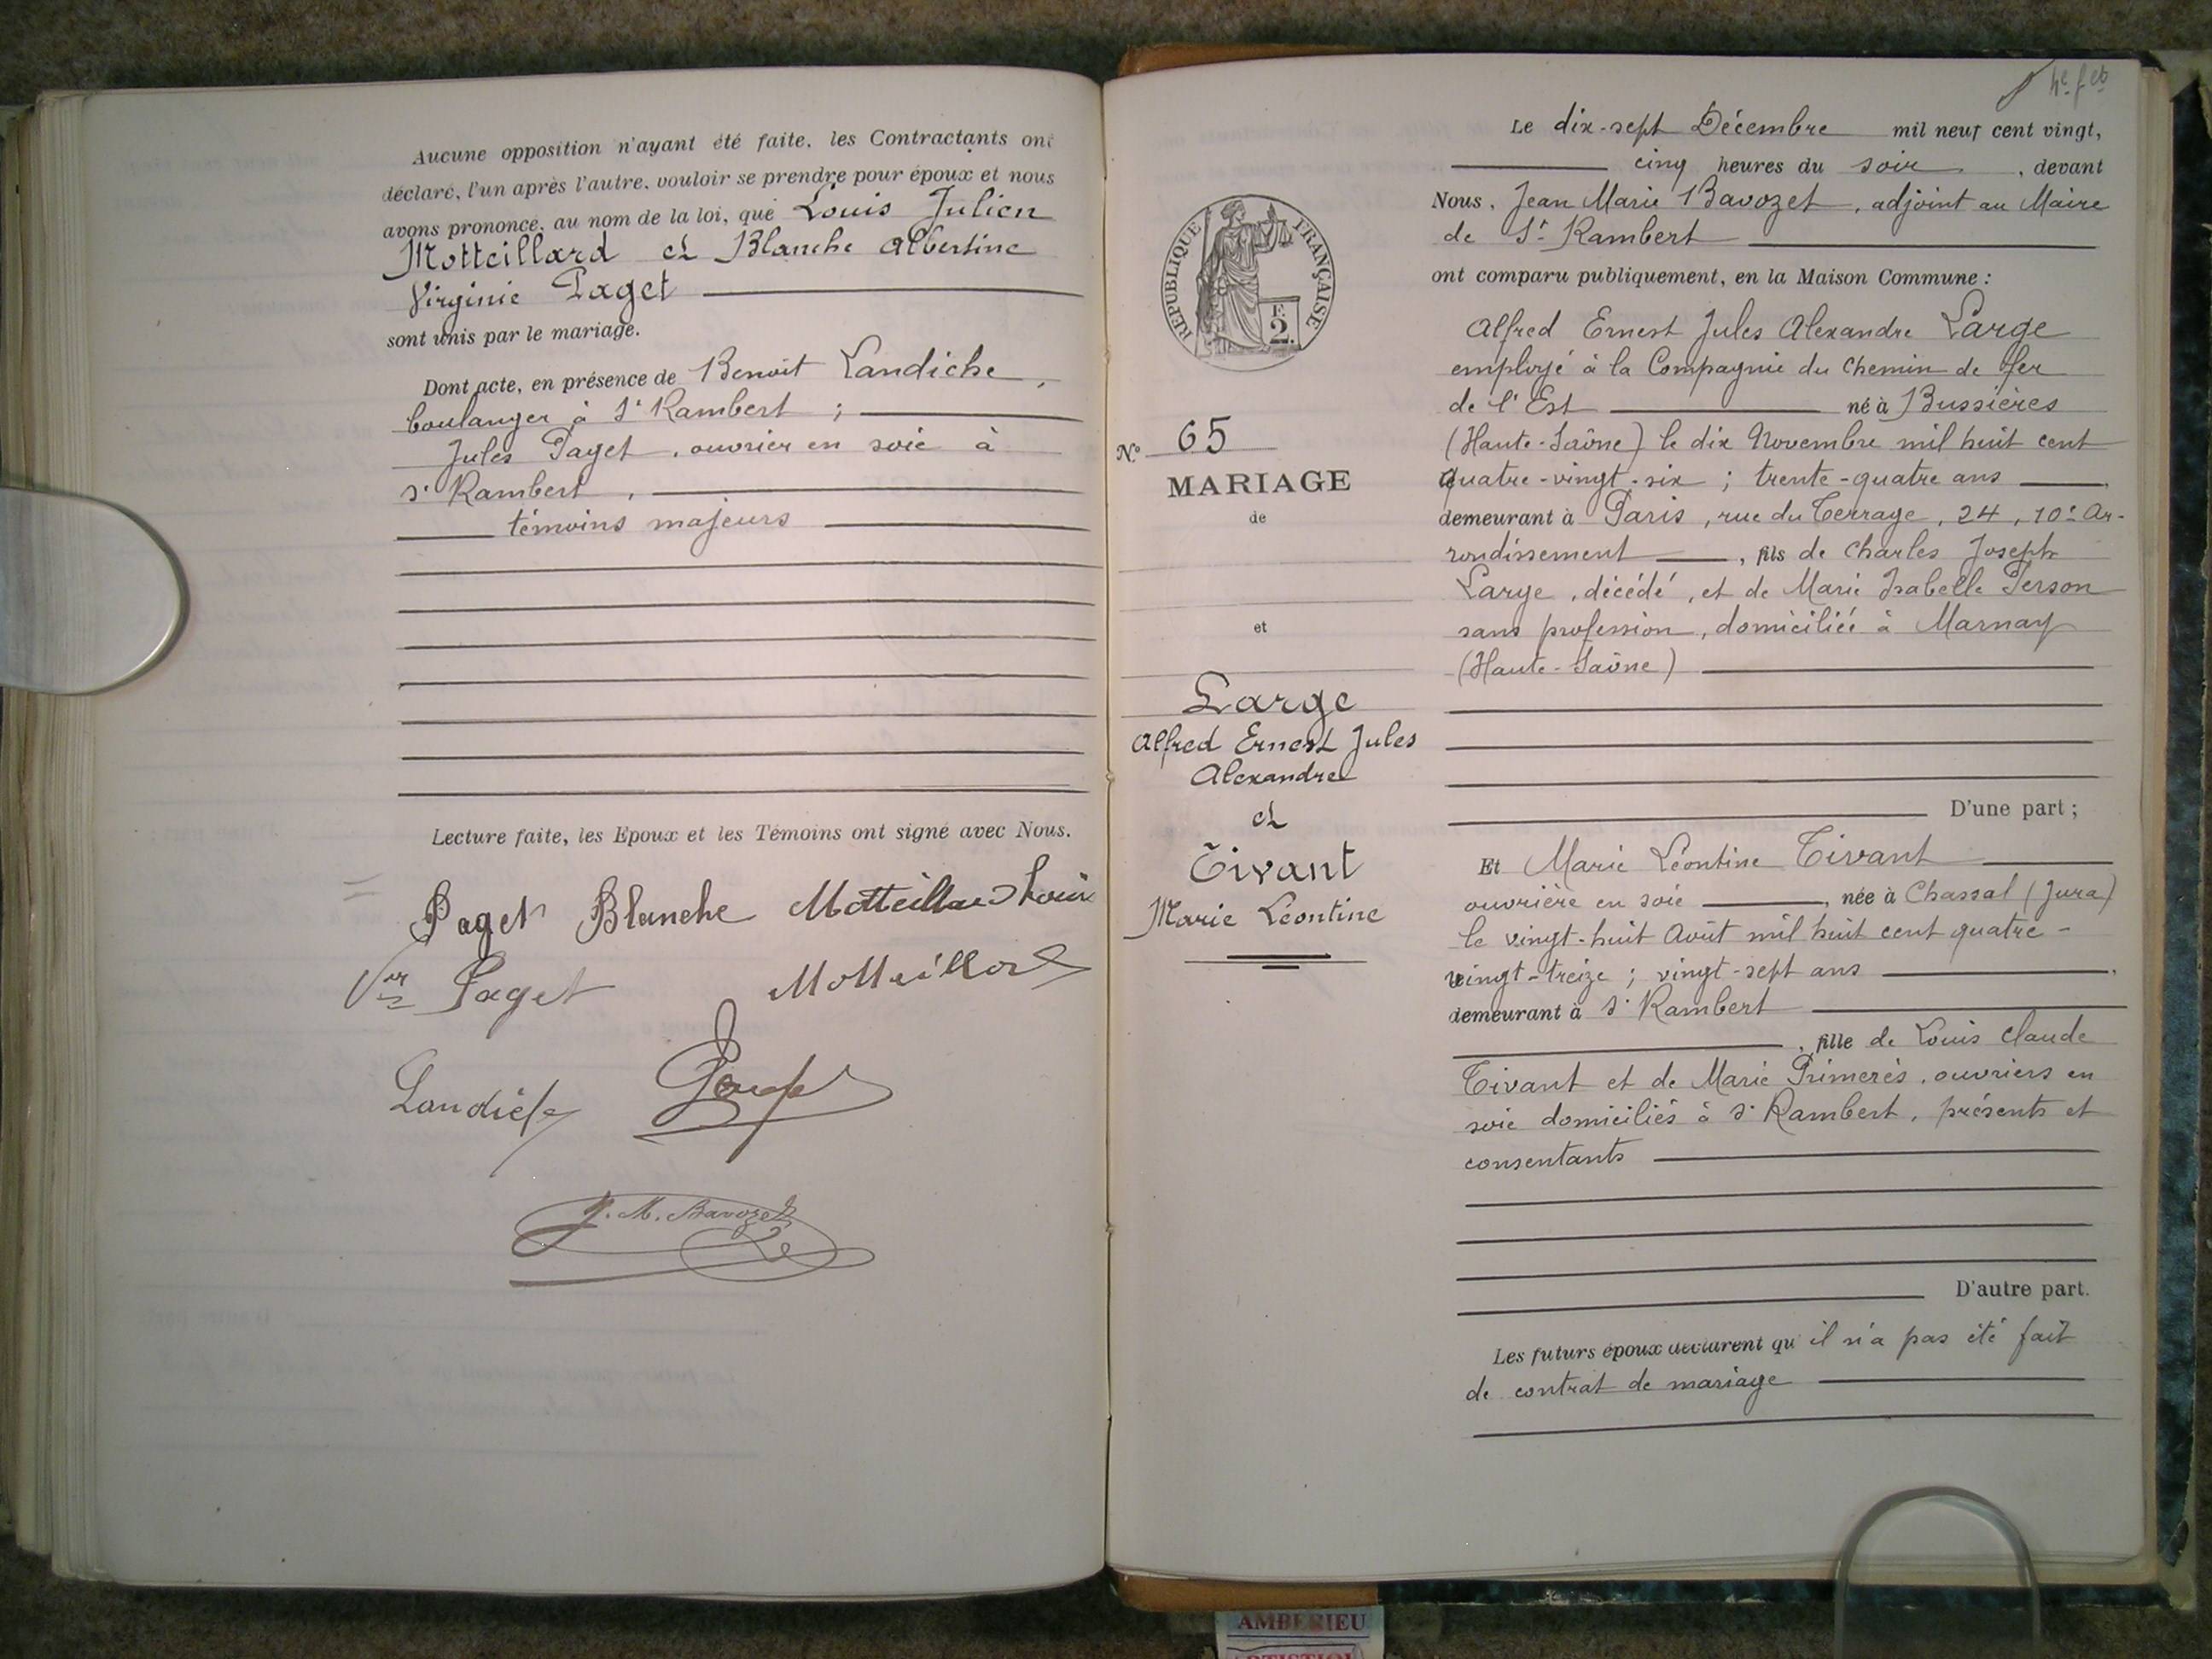 Aucune opposition n'ayant été faite, les Contractants ont
déclaré, l'un après l'autre, vouloir se prendre pour époux et nous
avons prononcé, au nom de la loi, que Louis Julien
Motteillard et Blanche Albertine
Virginie Paget
sont unis par le mariage.
Dont acte, en présence de Benoit Landiche,
boulanger à St Rambert ;
Jules Paget, ouvrier en soie à
St Rambert,
témoins majeurs
Lecture faite, les Epoux et les Témoins ont signé avec Nous.
Paget Blanche Motteillard Louis
Paget Motteillard
Landiche
J. M. Bavozet
RÉPUBLIQUE FRANÇAISE
F.
2.
N° 65
MARIAGE
de
et
Large
Alfred Ernest Jules
Alexandre
et
Tivant
Marie Léontine
Le dix-sept Décembre mil neuf cent vingt,
cinq heures du soir, devant
Nous, Jean Marie Bavozet, adjoint au Maire
de St Rambert
ont comparu publiquement, en la Maison Commune :
Alfred Ernest Jules Alexandre Large
employé à la Compagnie du Chemin de fer
de l'Est né à Bussières
(Haute-Saône) le dix Novembre mil huit cent
quatre-vingt-six ; trente-quatre ans
demeurant à Paris, rue du Terrage, 24, 10e Ar-
rondissement, fils de Charles Joseph
Large, décédé, et de Marie Isabelle Person
sans profession, domiciliée à Marnay
(Haute-Saône)
D'une part ;
Et Marie Léontine Tivant
ouvrière en soie, née à Chassal (Jura)
le vingt-huit Août mil huit cent quatre-
vingt-treize ; vingt-sept ans
demeurant à St Rambert
, fille de Louis Claude
Tivant et de Marie Primerès, ouvriers en
soie domiciliés à St Rambert, présents et
consentants
D'autre part.
Les futurs époux déclarent qu'il n'a pas été fait
de contrat de mariage
AMBERIEU